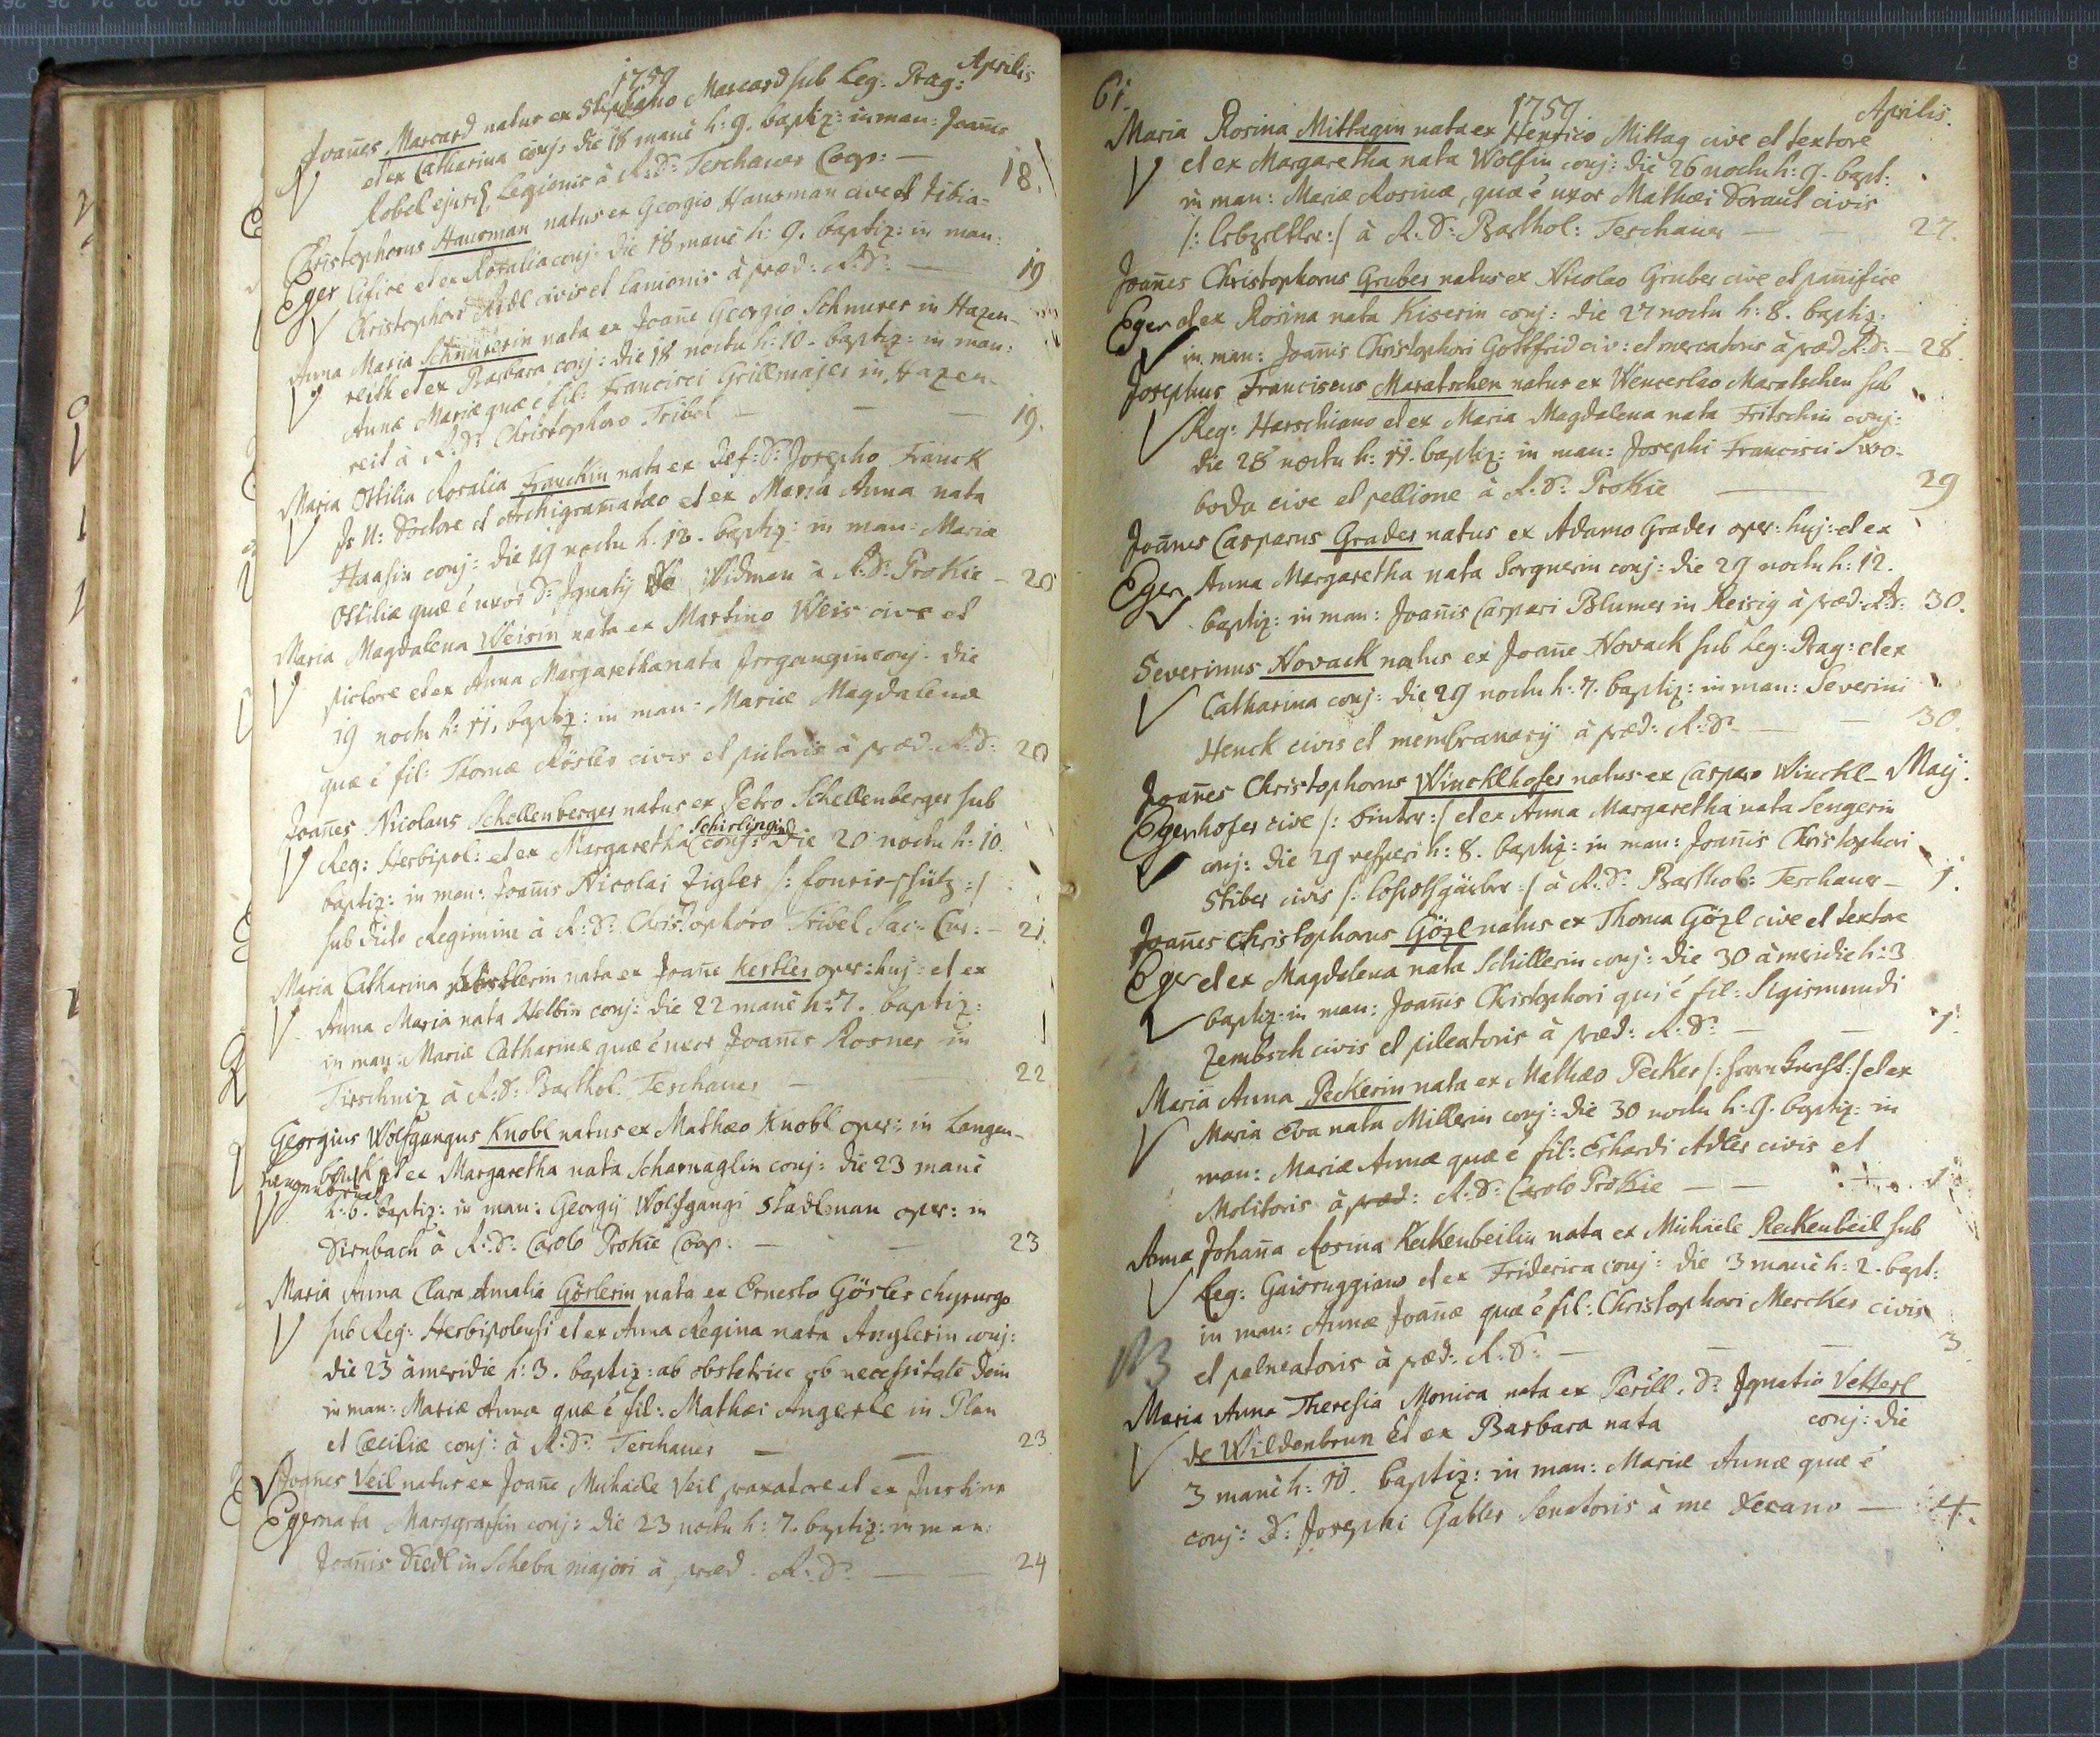 1759 Aprilis
Joañes Marcard natus ex Stephano Marcard sub Leg: Prag:
et ex Catharina conj: die 18 manè h: 9. baptiz: in man: Joañis
Kobel ejusd Legionis à R: D: Teschauer Coop: — 18.
Christophorus Hausman natus ex Georgio Hausman cive et tibia=
Eger licire et ex Rosalia conj: die 18 manè h: 9. baptiz: in man:
Christophori Ridl civis et lanionis à præd: R: D: — 19
Anna Maria Schnurerin nata ex Joañe Georgio Schnurer in Hazen-
reith et ex Barbara conj: die 18 noctu h: 10. baptiz: in man:
Annæ Mariæ quæ é fil: Francisci Grillmajer in Hazen-
reit à R: D: Christophoro Tribel — — — 19.
Maria Ottilia Rosalia Franckin nata ex Def: D: Josepho Franck
Js U: Doctore et Archigram̄atæo et ex Maria Anna nata
Haasin conj: die 19 noctu h: 12. baptiz: in man: Mariæ
Ottiliæ quæ é uxor D: Ignatij De Widman à R: D: Prokie — 20
Maria Magdalena Weisin nata ex Martino Weis cive et
pictore et ex Anna Margaretha nata Jrrgangin conj: die
19 noctu h: 11. baptiz: in man: Mariæ Magdalenæ
quæ é fil: Thomæ Rösler civis et pictoris à præd: R: D: 20
Joañes Nicolaus Schellenberger natus ex Petro Schellenberger sub
Schirlingin
Reg: Herbipol: et ex Margaretha conj: die 20 noctu h: 10.
baptiz: in man: Joañis Nicolai Zigler /: fourir-schütz :/
sub dicto Regimine à R: D: Christophoro Tribel Sac: Cur: — 21.
Maria Catharina Kestlerin nata ex Joañe Kestler oper: huj: et ex
Anna Maria nata Helbin conj: die 22 manè h: 7. baptiz:
in man: Mariæ Catharinæ quæ é uxor Joañis Rosner in
Tirschniz à R: D: Barthol: Teschauer — — 22
Georgius Wolfgangus Knobl natus ex Mathæo Knobl oper: in Langen-
Langenbruck
bruk et ex Margaretha nata Scharnaglin conj: die 23 manè
h: 6. baptiz: in man: Georgij Wolfgangi Stadlman oper: in
Dirnbach à R: D: Carolo Prokie Coop: — — 23
Maria Anna Clara Amalia Görlerin nata ex Ernesto Görler chyrurgo
sub Reg: Herbipolensi et ex Anna Regina nata Anglerin conj:
die 23 à meridie h: 3. baptiz: ab obstetrice ob necessitatē dein
in man: Mariæ Annæ quæ é fil: Mathæi Angerle in Plan
et Cæciliæ conj: à R: D: Teschauer — — 23
Joañes Veil natus ex Joañe Michaele Veil praxatore et ex Justina
Eger nata Marggrafin conj: die 23 noctu h: 7. baptiz: in man:
Joañis Diedl in Scheba majori à præd. R: D: — — 24
61.
1759 Aprilis.
Maria Rosina Mittagin nata ex Henrico Mittag cive et textore
et ex Margaretha nata Wolfin conj: die 26 noctu h: 9. bapt:
in man: Mariæ Rosinæ, quæ é uxor Mathæi Doraut civis
/: lebzeltler :/ à R: D: Barthol: Teschauer — — 27.
Joañes Christophorus Gruber natus ex Nicolao Gruber cive et pañifice
Eger et ex Rosina nata Kiserin conj: die 27 noctu h: 8. baptiz:
in man: Joañis Christophori Gottfrid civ: et mercatoris à præd R: D: — 28.
Josephus Franciscus Maratschen natus ex Wenceslao Maratschen sub
Reg: Harschiano et ex Maria Magdalena nata Fritschin conj:
die 28 noctu h: 11. baptiz: in man: Josephi Francisci Swo-
boda cive et pellione à R: D: Prokie — 29
Joañes Casparus Grader natus ex Adamo Grader oper: huj: et ex
Eger Anna Margaretha nata Sorgnerin conj: die 29 noctu h: 12.
baptiz: in man: Joañis Caspari Blumer in Reisig à præd: R: D: 30.
Severinus Novack natus ex Joañe Novack sub Leg: Prag: et ex
Catharina conj: die 29 noctu h: 7. baptiz: in man: Severini
Henck civis et membranarij à præd: R: D: — — 30.
Joañes Christophorus Wincklhofer natus ex Casparo Winckl- Maij.
Eger hofer cive /: binder :/ et ex Anna Margaretha nata Sengerin
conj: die 29 vesperi h: 8. baptiz: in man: Joañis Christophori
Stiber civis /: lohrothgärber :/ à R: D: Barthol: Teschauer — 1.
Joañes Christophorus Gözl natus ex Thoma Gözl cive et textore
Eger et ex Magdalena nata Schillerin conj: die 30 à meridie h: 3
baptiz: in man: Joañis Christophori qui é fil: Sigismundi
Zembsch civis et pileatoris à præd: R: D: — — 1.
Maria Anna Peckerin nata ex Mathæo Pecker et ex
Maria Eva nata Millerin conj: die 30 noctu h: 9. baptiz: in
man: Mariæ Annæ quæ é fil: Erhardi Adler civis et
Molitoris à præd: R: D: Carolo Prokie — — 1.
Anna Johaña Rosina Reckenbeilin nata ex Michaele Reckenbeil sub
Leg: Gaisruggiano et ex Friderica conj: die 3 manè h: 2. bapt:
in man: Annæ Joañæ quæ é fil: Christophori Mercker civis
NB et palneatoris à præd: R: D: — — — 3
Maria Anna Theresia Monica nata ex Perill. D: Ignatio Vetterl
de Wildenbrun et ex Barbara nata conj: die
3 manè h: 11. baptiz: in man: Mariæ Annæ quæ é
conj: D: Josephi Gabler Senatoris à me Decano — 4.